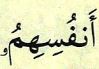 أَنفُسِهِمُۥ